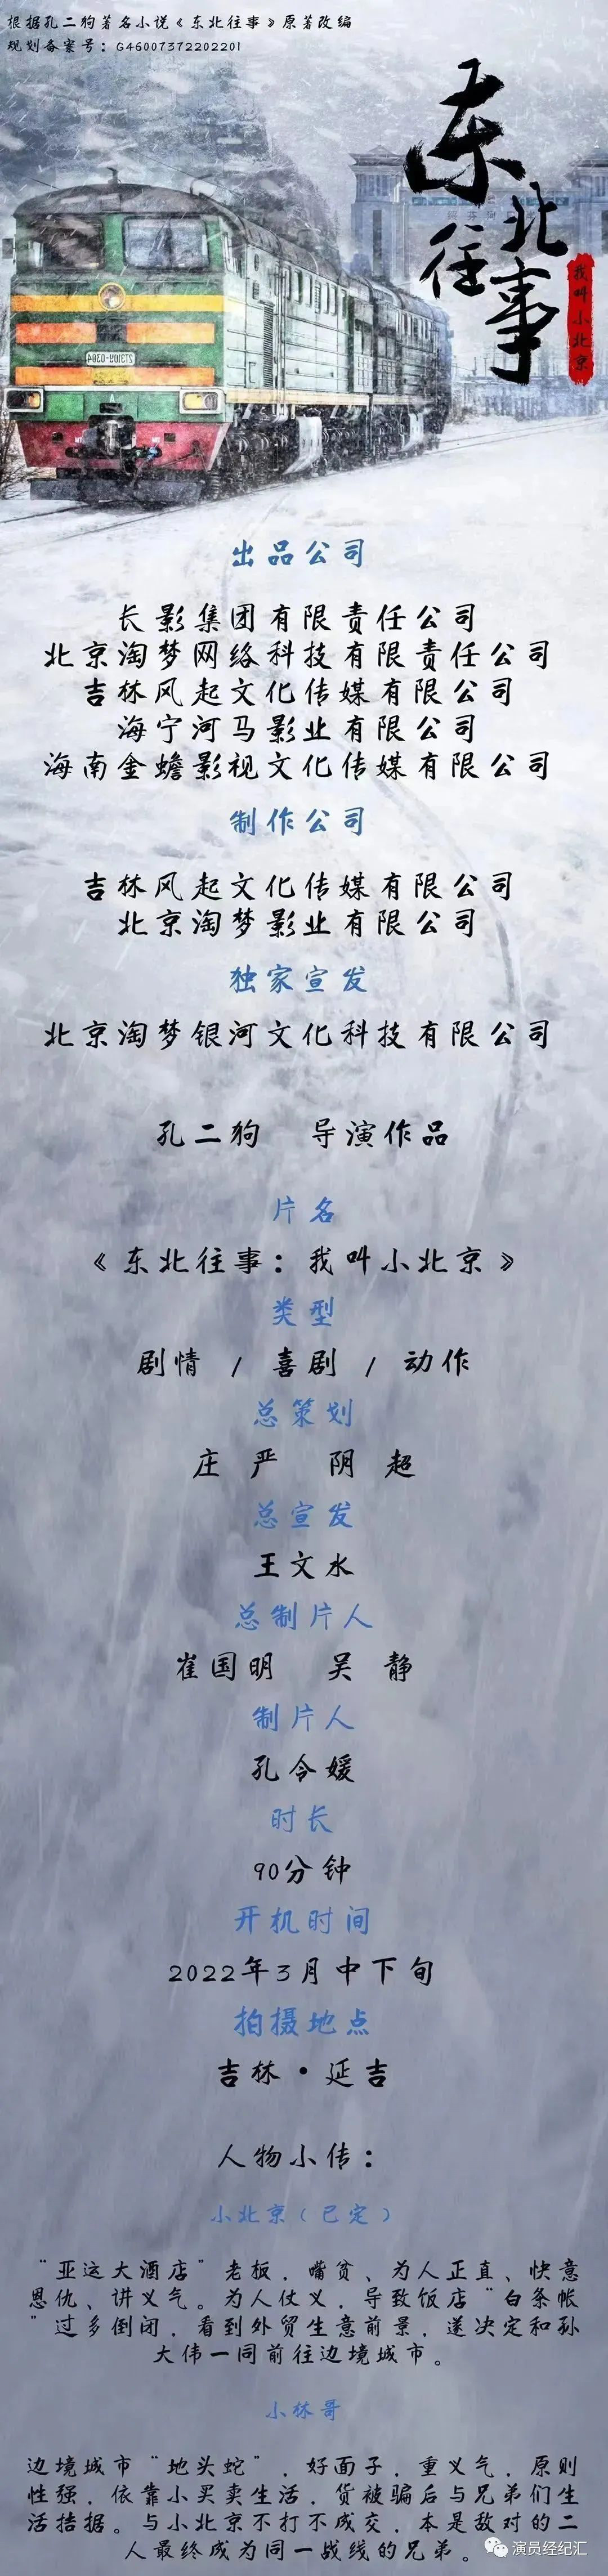 根据孔二狗著名小说《东北往事》原著改编
规划备案号：G46007372202201
东北往事
我叫小北京
出品公司
长影集团有限责任公司
北京淘梦网络科技有限责任公司
吉林风起文化传媒有限公司
海宁河马影业有限公司
海南金蟾影视文化传媒有限公司
制作公司
吉林风起文化传媒有限公司
北京淘梦影业有限公司
独家宣发
北京淘梦银河文化科技有限公司
孔二狗 导演作品
片名
《东北往事：我叫小北京》
类型
剧情 / 喜剧 / 动作
总策划
庄严 阴超
总宣发
王文水
总制片人
崔国明 吴静
制片人
孔令媛
时长
90分钟
开机时间
2022年3月中下旬
拍摄地点
吉林·延吉
人物小传：
小北京（已定）
“亚运大酒店”老板，嘴贫、为人正直、快意
恩仇、讲义气。为人仗义，导致饭店“白条帐
”过多倒闭，看到外贸生意前景，遂决定和孙
大伟一同前往边境城市。
小林哥
边境城市“地头蛇”，好面子，重义气，原则
性强，依靠小买卖生活，货被骗后与兄弟们生
活拮据。与小北京不打不成交，本是敌对的二
人最终成为同一战线的兄弟。
演员经纪汇